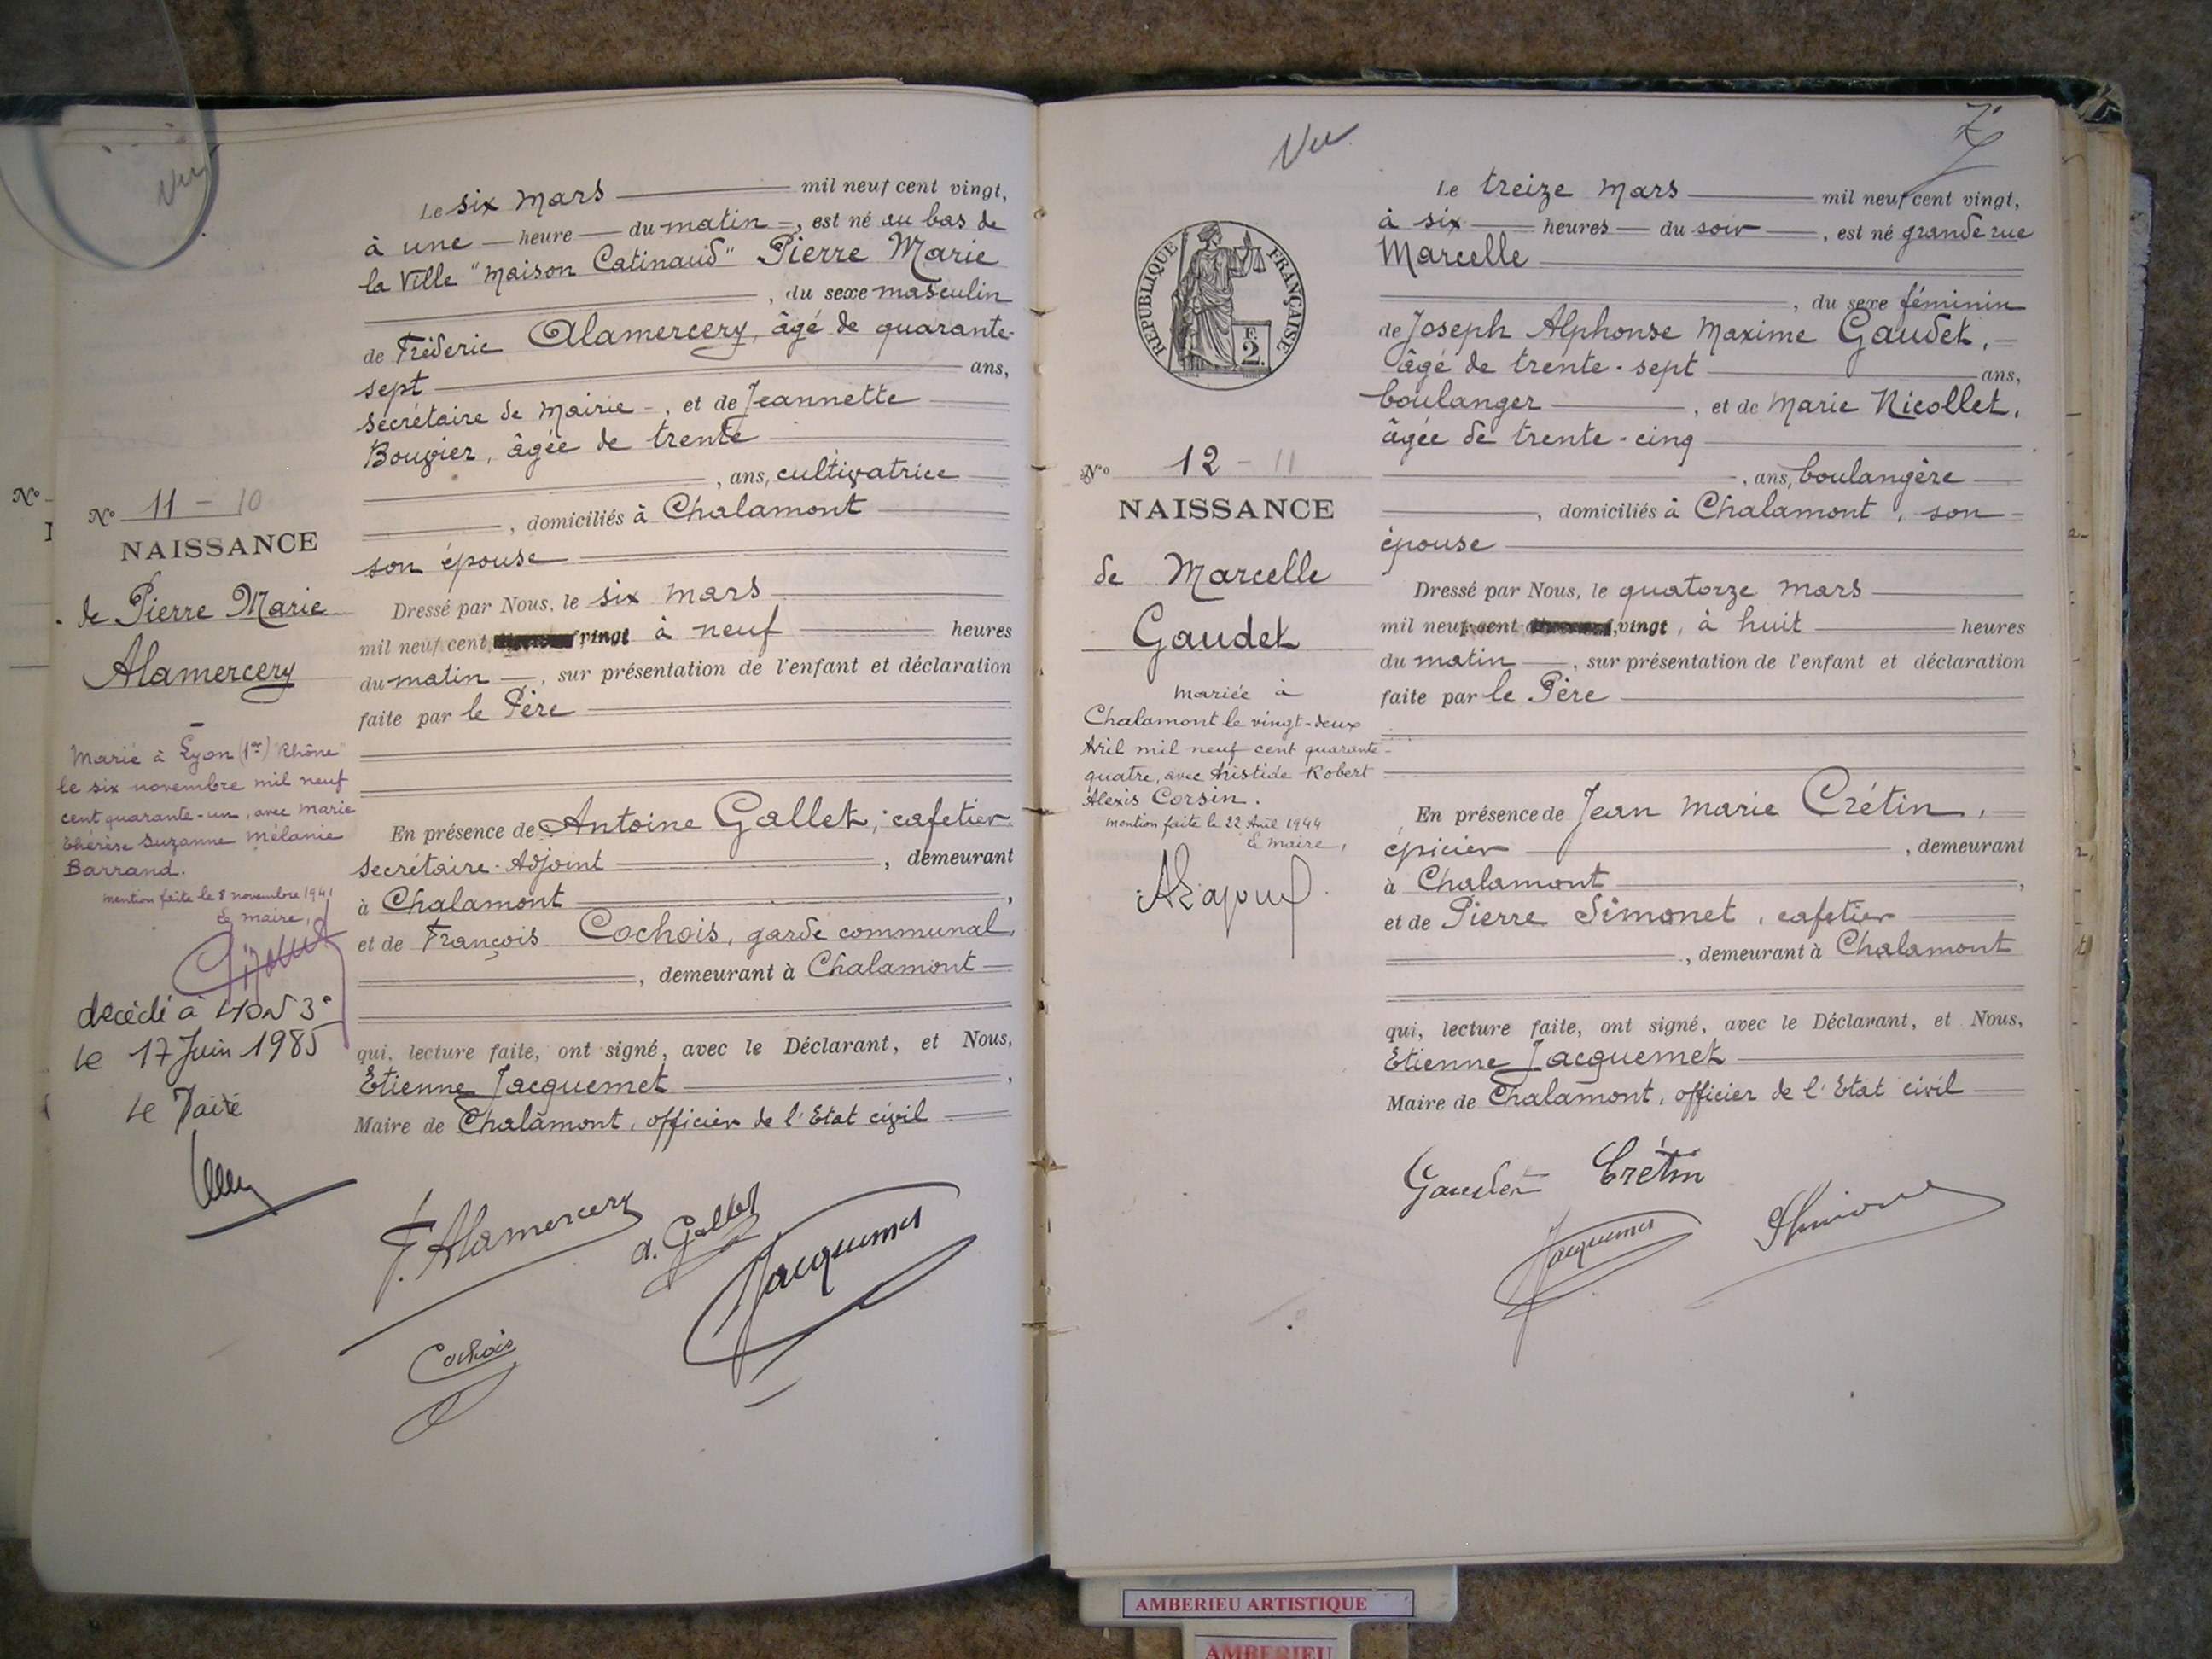 Vu
Le six mars mil neuf cent vingt,
à une heure du matin, est né au bas de
la Ville "maison Catinaud" Pierre Marie
, du sexe masculin
de Fréderic Alamercery, âgé de quarante-
sept ans,
secrétaire de Mairie -, et de Jeannette
Bouvier, âgée de trente
, ans, cultivatrice
, domiciliés à Chalamont
son épouse
Dressé par Nous, le six mars
mil neuf cent vingt à neuf heures
du matin, sur présentation de l'enfant et déclaration
faite par le Père
En présence de Antoine Gallet, cafetier
secrétaire-Adjoint, demeurant
à Chalamont,
et de François Cochois, garde communal,
, demeurant à Chalamont
qui, lecture faite, ont signé, avec le Déclarant, et Nous,
Etienne Jacquemet,
Maire de Chalamont, officier de l'Etat civil
F. Alamercery
a. Gallet
Jacquemet
Cochois
No
No 11 - 10
NAISSANCE
de Pierre Marie
Alamercery
Marié à Lyon (1er) Rhône
le six novembre mil neuf
cent quarante-un, avec Marie
Thérèse Suzanne Mélanie
Barrand.
mention faite le 8 novembre 1941
le maire,
décédé à LYON 3e
le 17 Juin 1985
Vu
7
RÉPUBLIQUE FRANÇAISE
F.
2.
No 12 - 11
NAISSANCE
de Marcelle
Gaudet
mariée à
Chalamont le vingt-deux
Avril mil neuf cent quarante-
quatre, avec Aristide Robert
Alexis Corsin.
mention faite le 22 Avril 1944
le maire,
Le treize mars mil neuf cent vingt,
à six heures du soir, est né grande rue
Marcelle
, du sexe féminin
de Joseph Alphonse Maxime Gaudet,
âgé de trente-sept ans,
boulanger, et de Marie Nicollet,
âgée de trente-cinq
, ans, boulangère
, domiciliés à Chalamont, son
épouse
Dressé par Nous, le quatorze mars
mil neuf cent vingt, à huit heures
du matin, sur présentation de l'enfant et déclaration
faite par le Père
En présence de Jean Marie Crétin,
épicier, demeurant
à Chalamont,
et de Pierre Simonet, cafetier
, demeurant à Chalamont
qui, lecture faite, ont signé, avec le Déclarant, et Nous,
Etienne Jacquemet
Maire de Chalamont, officier de l'Etat civil
Gaudet Crétin
Jacquemet
AMBERIEU ARTISTIQUE
AMBERIEU